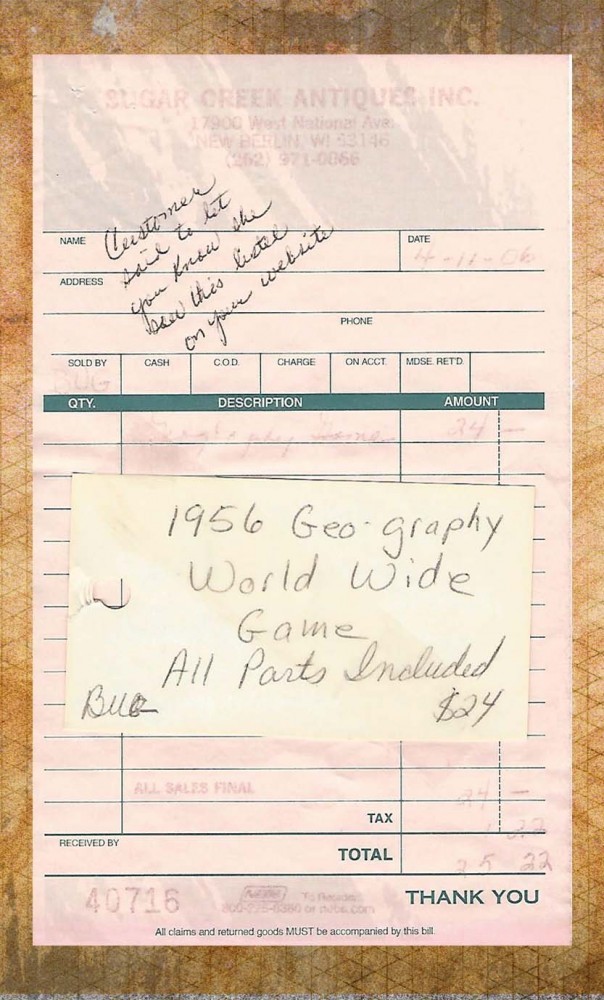 SUGAR CREEK ANTIQUES INC.
17900 West National Ave.
NEW BERLIN, WI 53146
(262) 971-0066
Customer
said to let
you know she
saw this listed
on your website
NAME
DATE
4-11-06
ADDRESS
PHONE
SOLD BY CASH C.O.D. CHARGE ON ACCT. MDSE. RET'D.
BUG
QTY. DESCRIPTION AMOUNT
Game 24 —
1956 Geo-graphy
World Wide
Game
All Parts Included
BUG $24
ALL SALES FINAL 24 —
TAX 1 22
RECEIVED BY
TOTAL 25 22
40716
To Reorder:
THANK YOU
All claims and returned goods MUST be accompanied by this bill.